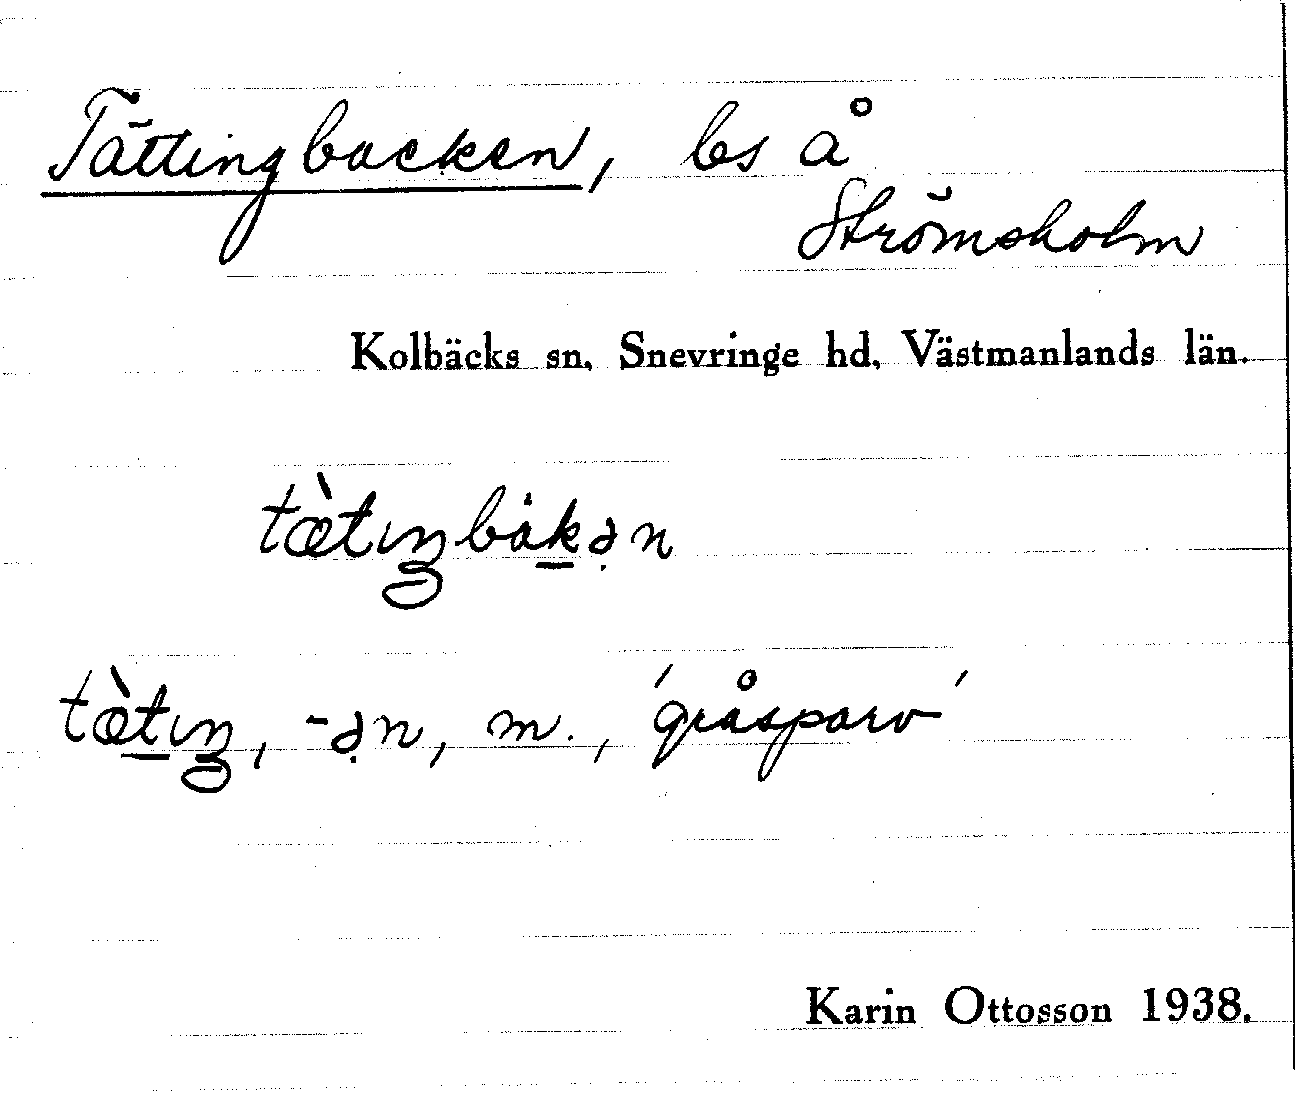 Tättingbacken, bs å
Strömsholm
Kolbäcks sn, Snevringe hd, Västmanlands län.
tæ̀tıŋbȧkən
tæ̀tıŋ, -ən, m., 'gråsparv'
Karin Ottosson 1938.